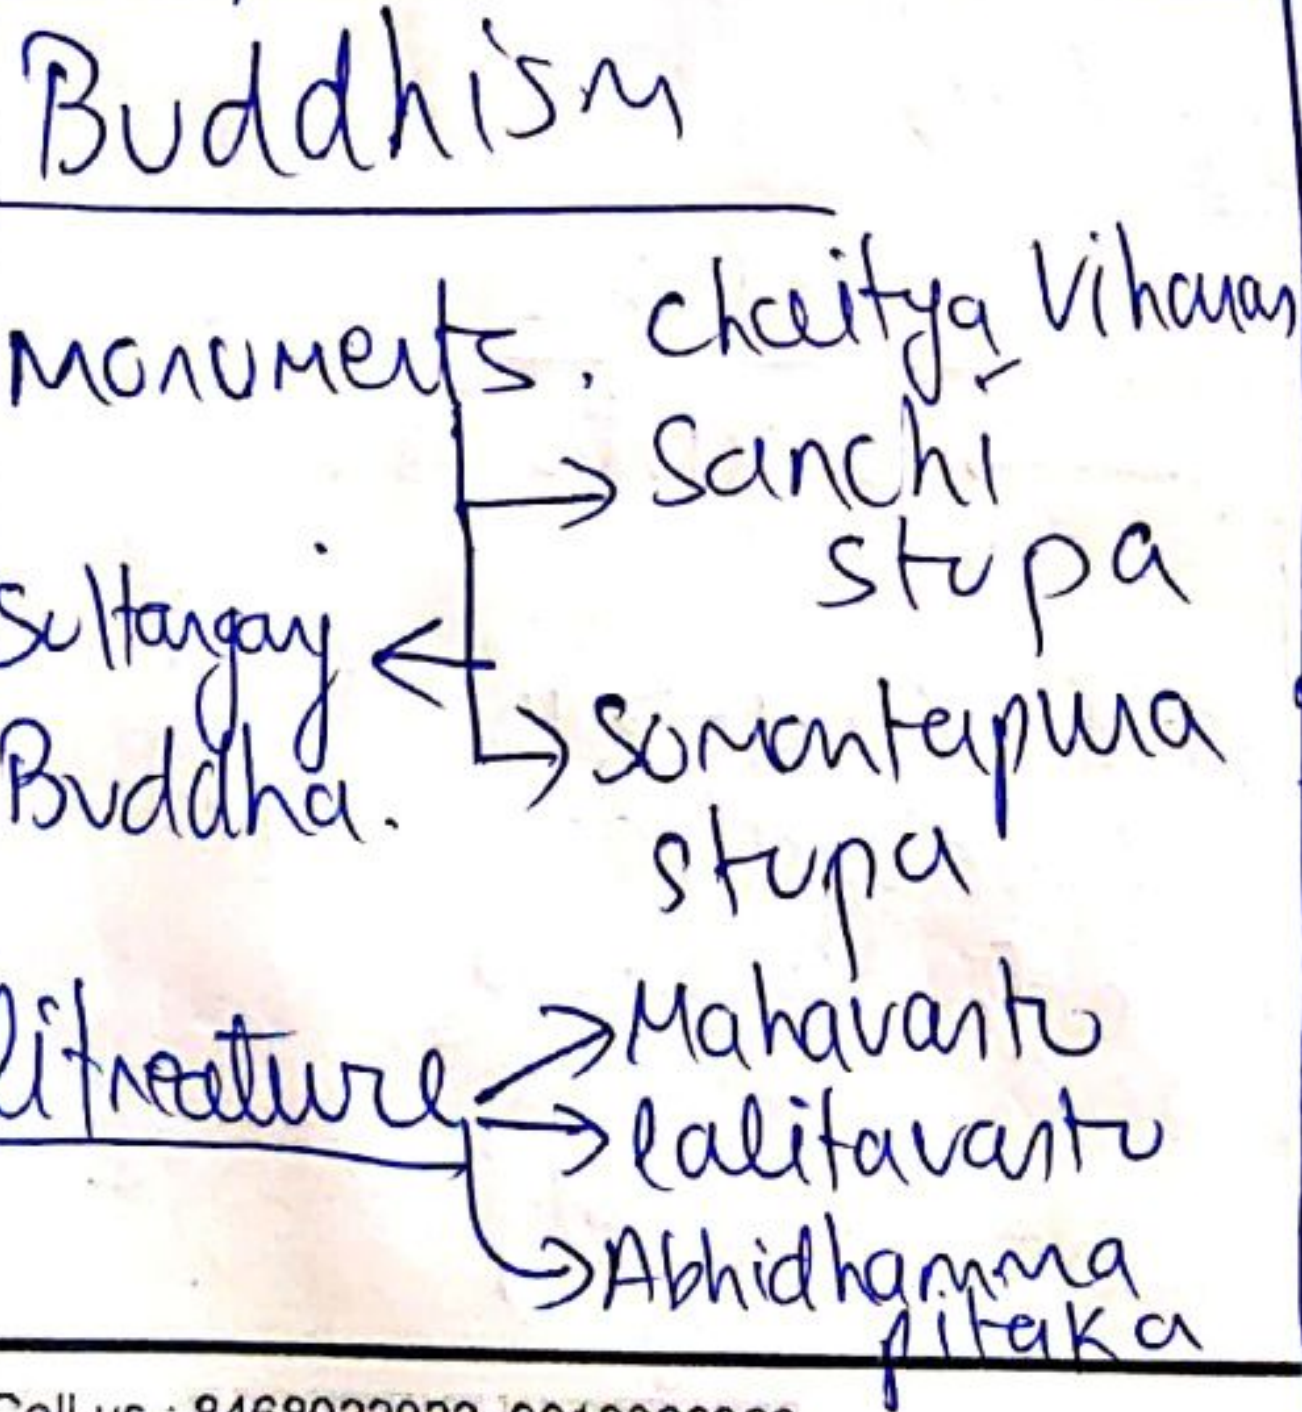 Buddhism
Monuments. Chaitya Viharas
Sanchi
stupa
Sultanganj
Buddha.
stupa
litreature
Mahavastu
lalitavastu
Abhidhamma
pitaka
Call us :